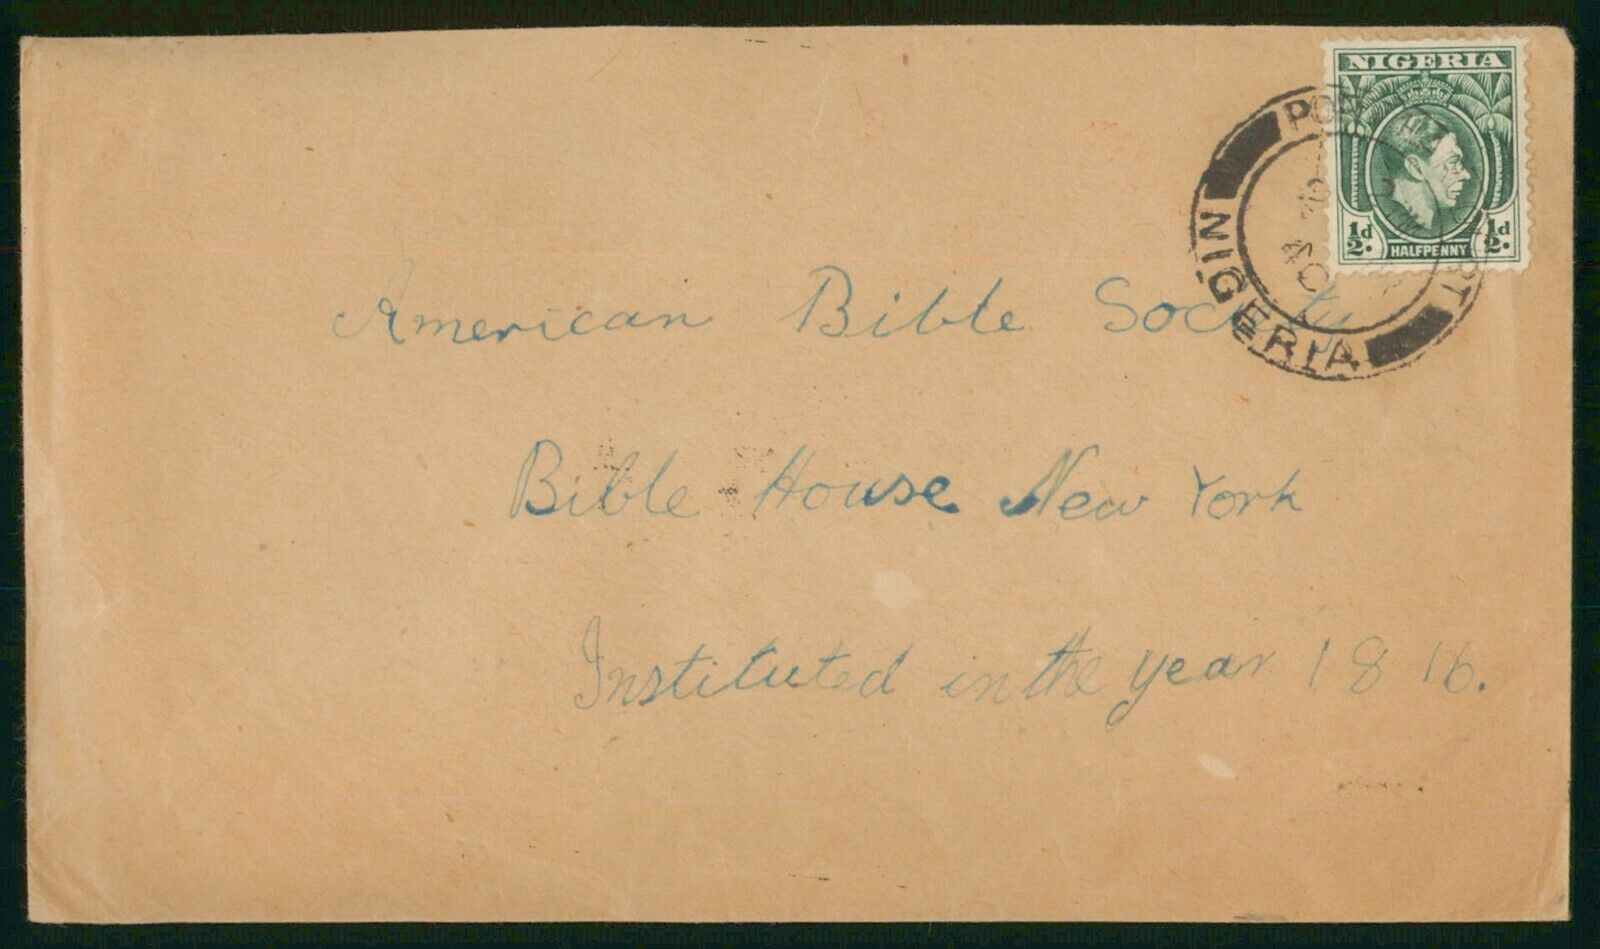 NIGERIA
½d. HALFPENNY ½d.
NIGERIA
American Bible Society
Bible House New York
Instituted in the year 1816.